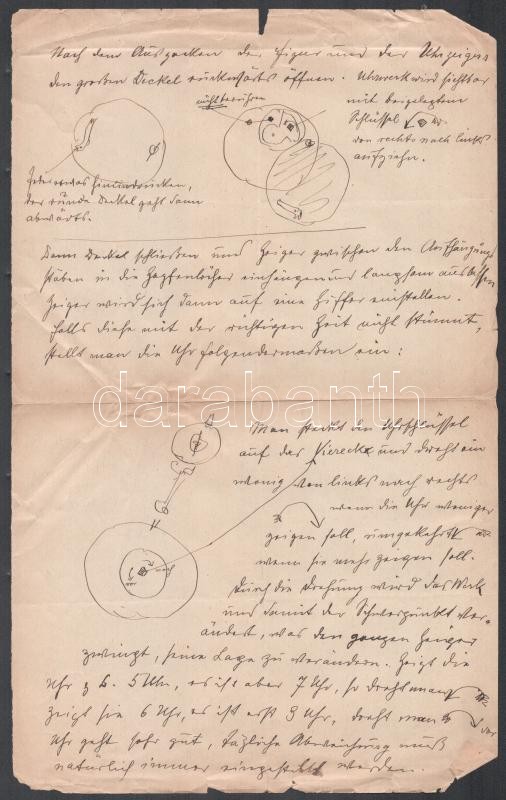 Nach dem Auspacken der Figur und der Uhrzeigers
den großen Deckel rückwärts öffnen. Uhrwerk wird sichtbar
nicht berühren
mit beigelegtem
Schlüssel
von rechts nach links
aufziehn.
Feder etwas hinundrücken,
der runde Deckel geht dann
abwärts.
Dann Deckel schließen und Zeiger zwischen den Aufhängung
stäben in die Zapfenlöcher einhängen und langsam auslassen
Zeiger wird sich dann auf eine Ziffer einstellen.
Falls diese mit der richtigen Zeit nicht stimmt,
stellt man die Uhr folgendermaßen ein:
darabanth
Man steckt den Uhrschlüssel
auf das Viereck und dreht ein
wenig von links nach rechts
wenn die Uhr weniger
zeigen soll, umgekehrt
wenn sie mehr zeigen soll.
vor
nach
Durch die Drehung wird das Werk
und damit der Schwerpunkt ver-
ändert, was den ganzen Zeiger
zwingt, seine Lage zu verändern. Zeigt die
Uhr z. B. 5 Uhr, es ist aber 7 Uhr, so dreht man
zeigt sie 6 Uhr, es ist erst 3 Uhr, dreht man
vor
Uhr geht sehr gut, tägliche Abweichung muß
natürlich immer eingestellt werden.